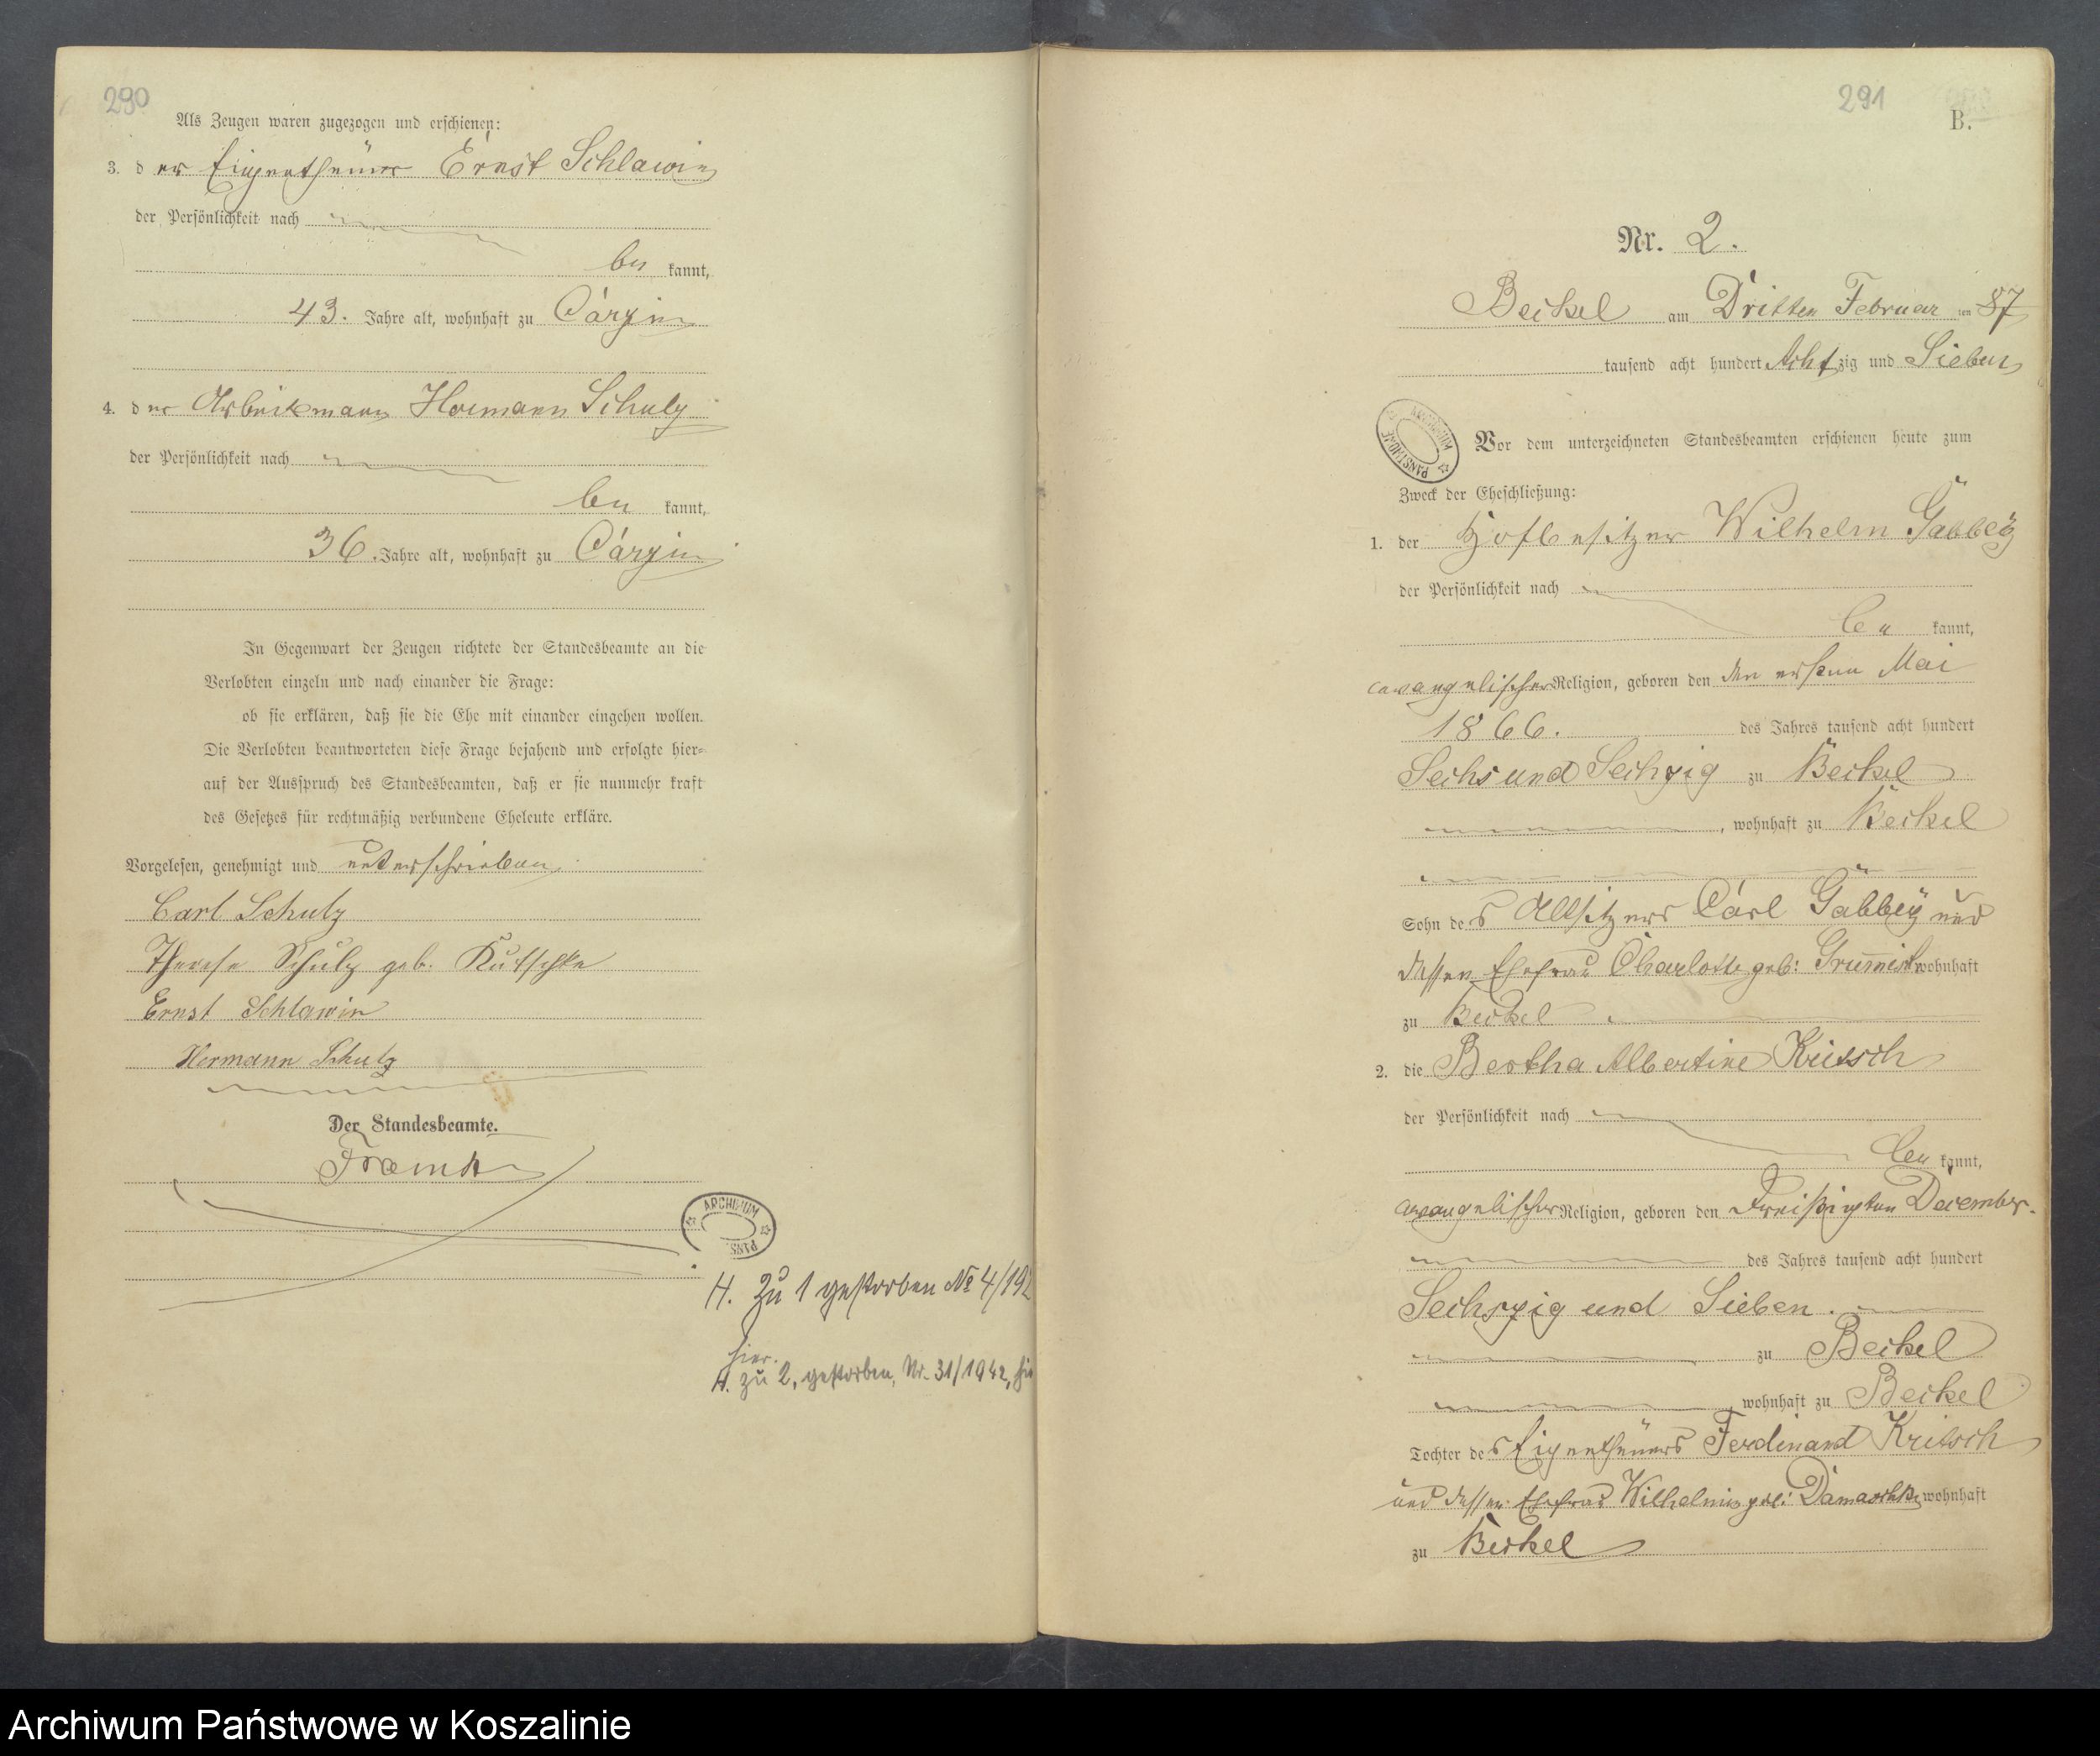 290
Als Zeugen waren zugezogen und erschienen:
3. der Eigenthümer Ernst Schlawin
der Persönlichkeit nach
be kannt,
43. Jahre alt, wohnhaft zu Carzin
4. der Arbeitsmann Hermann Schulz
der Persönlichkeit nach
be kannt,
36. Jahre alt, wohnhaft zu Carzin
In Gegenwart der Zeugen richtete der Standesbeamte an die
Verlobten einzeln und nach einander die Frage:
ob sie erklären, daß sie die Ehe mit einander eingehen wollen.
Die Verlobten beantworteten diese Frage bejahend und erfolgte hier-
auf der Ausspruch des Standesbeamten, daß er sie nunmehr kraft
des Gesetzes für rechtmäßig verbundene Eheleute erkläre.
Vorgelesen, genehmigt und unterschrieben
Carl Schulz
Therese Schulz geb. Kutschke
Ernst Schlawin
Hermann Schulz
Der Standesbeamte.
ARCHIWUM PAŃS
H. Zu 1 gestorben № 4/192
hier.
H. zu 2, gestorben, Nr. 31/1942, hie
291
B.
Nr. 2.
Beckel am Dritten Februar 87
tausend acht hundert Achtzig und Sieben
ARCHIWUM PAŃSTWOWE
Vor dem unterzeichneten Standesbeamten erschienen heute zum
Zweck der Eheschließung:
1. der Hofbesitzer Wilhelm Gabbey
der Persönlichkeit nach
be kannt,
evangelischer Religion, geboren den den ersten Mai
1866. des Jahres tausend acht hundert
Sechs und Sechzig zu Beckel
, wohnhaft zu Beckel
Sohn des Altsitzers Carl Gabbey und
dessen Ehefrau Charlotte geb: wohnhaft
zu Beckel
2. die Bertha Albertine Kritsch
der Persönlichkeit nach
be kannt,
evangelischer Religion, geboren den Dreißigsten December.
des Jahres tausend acht hundert
Sechszig und Sieben.
zu Beckel
, wohnhaft zu Beckel
Tochter des Eigenthümers Ferdinand Kritsch
und dessen Ehefrau Wilhelmine geb: Damaschke wohnhaft
zu Beckel
Archiwum Państwowe w Koszalinie